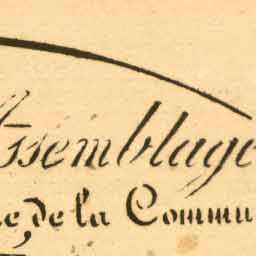 Assemblage
de la Commu